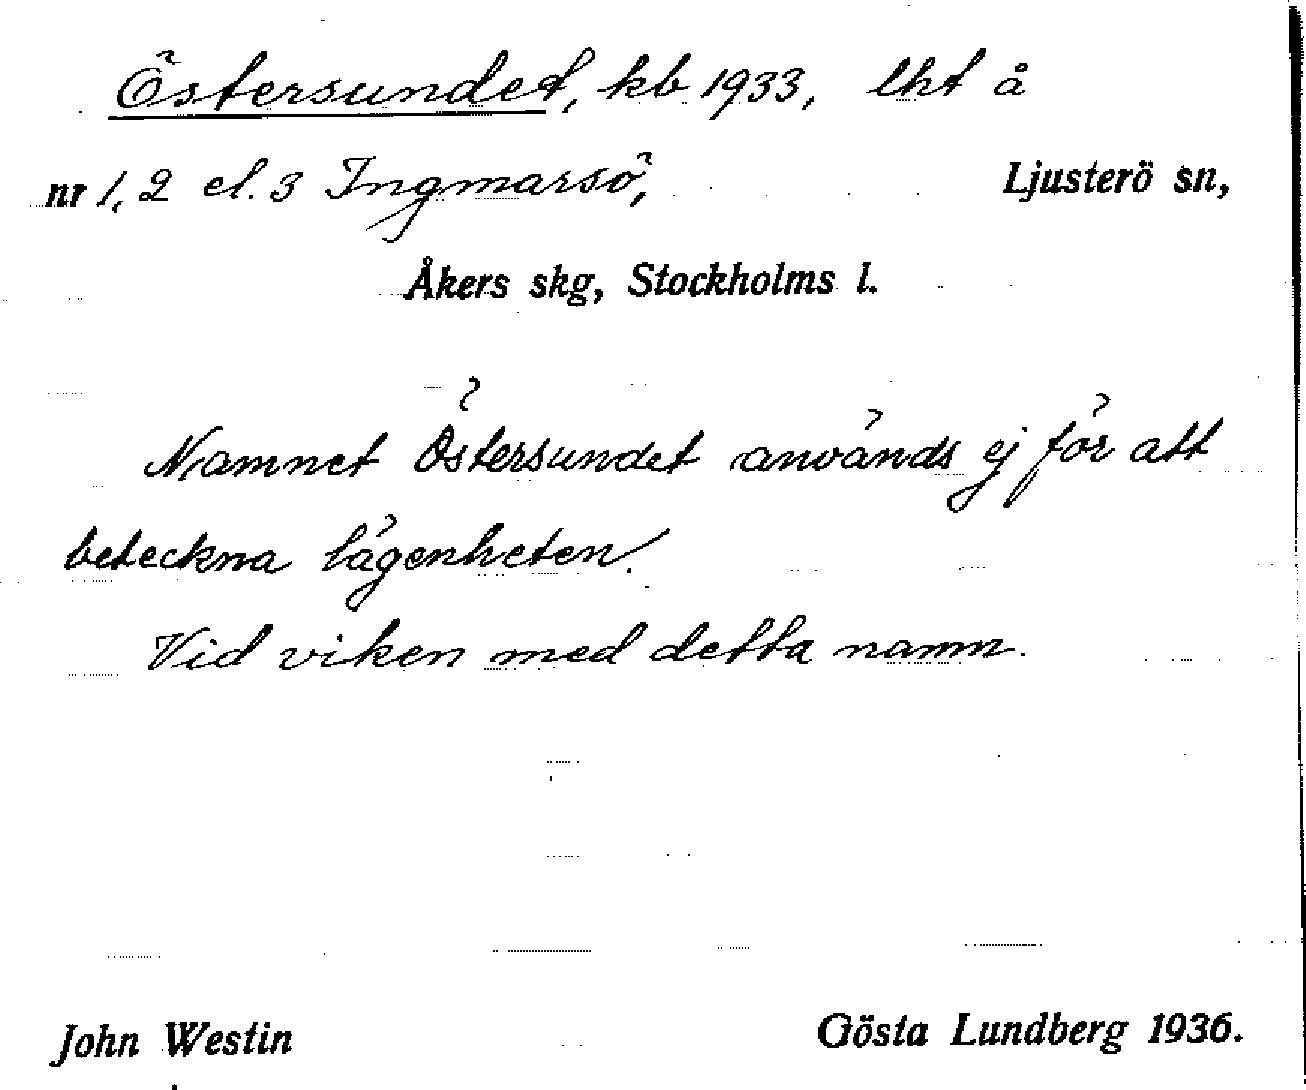 Östersundet, kb 1933, lht å
nr 1, 2 el. 3 Ingmarsö, Ljusterö sn,
Åkers skg, Stockholms l.
Namnet Östersundet används ej för att
beteckna lägenheten.
Vid viken med detta namn.
John Westin Gösta Lundberg 1936.